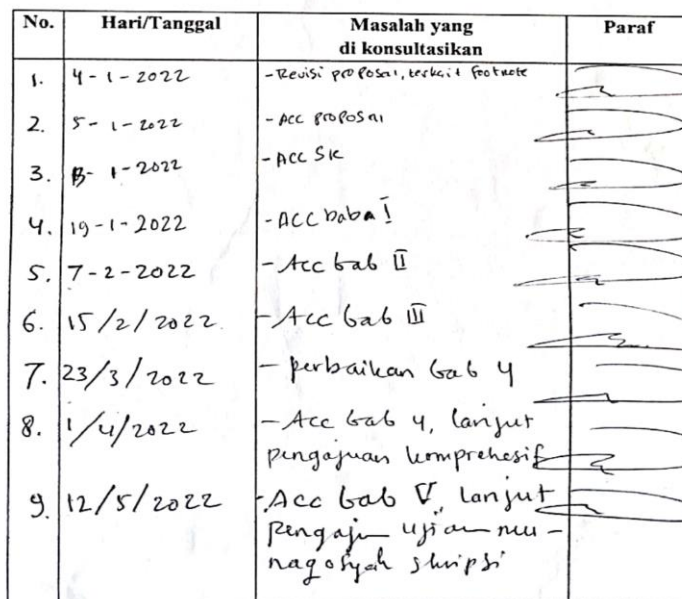 No. Hari/Tanggal Masalah yang di konsultasikan Paraf
1. 4-1-2022 -Revisi proposal, terkait footnote
2. 5-1-2022 -Acc proposal
3. 13-1-2022 -Acc SK
4. 19-1-2022 -Acc bab I
5. 7-2-2022 -Acc bab II
6. 15/2/2022 -Acc bab III
7. 23/3/2022 -perbaikan bab 4
8. 1/4/2022 -Acc bab 4, lanjut
pengajuan komprehesif
9. 12/5/2022 -Acc bab V, lanjut
pengaju ujian mu-
naqosyah skripsi